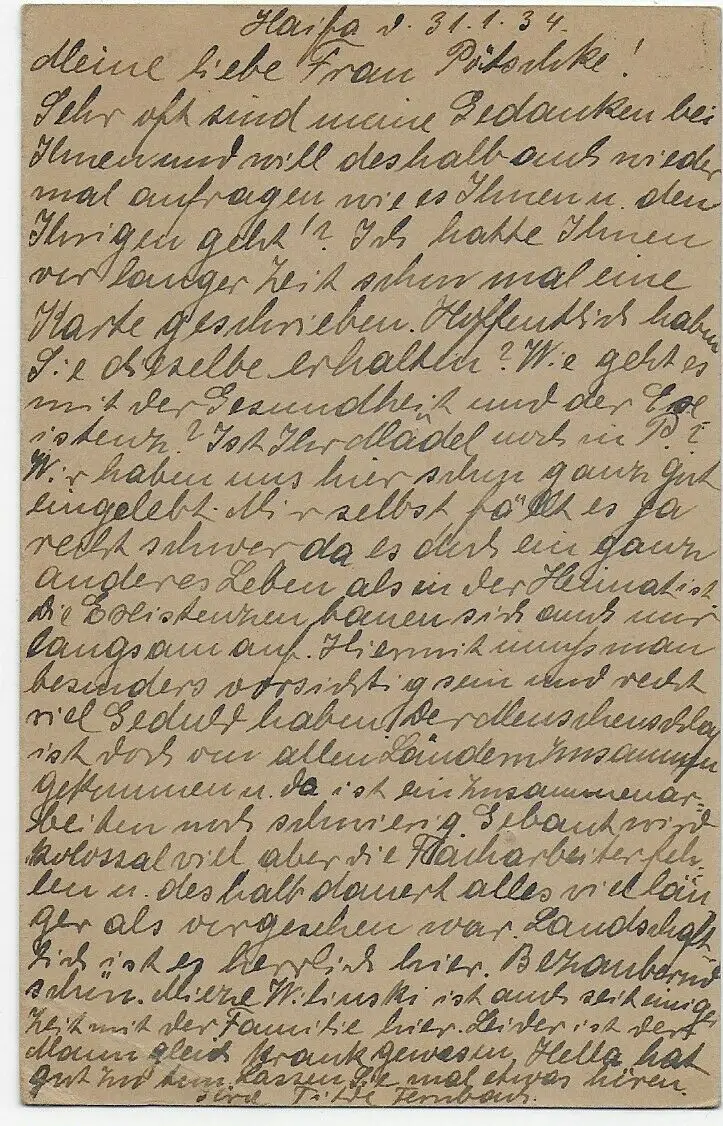 Haifa d. 31.1.34.
Meine liebe Frau Pötschke!
Sehr oft sind meine Gedanken bei
Ihnen und will deshalb auch wieder
mal anfragen wie es Ihnen u. den
Ihrigen geht!? Ich hatte Ihnen
vor langer Zeit schon mal eine
Karte geschrieben. Hoffentlich haben
Sie dieselbe erhalten? Wie geht es
mit der Gesundheit und der Exe
istenz? Ist Ihr Mädel noch in P.?
Wir haben uns hier schon ganz gut
eingelebt. Mir selbst fällt es ja
recht schwer da es doch ein ganz
anderes Leben als in der Heimat ist.
Die Existenzen bauen sich auch nur
langsam auf. Hier mit muss man
besonders vorsichtig sein und recht
viel Geduld haben. Der Menschenschlag
ist doch von allen Ländern zusammen
gekommen u. da ist ein zusammenar=
beiten noch schwierig. Gebaut wird
kolossal viel aber die Facharbeiter feh-
len u. deshalb dauert alles viel län
ger als vorgesehen war. Landschaft-
lich ist es herrlich hier. Bezaubernd
schön. Mieze Wilinski ist auch seit einiger
Zeit mit der Familie hier. Leider ist der
Mann gleich krank gewesen. Hella hat
gut zu tun. Lassen Sie mal etwas hören.
Ihre